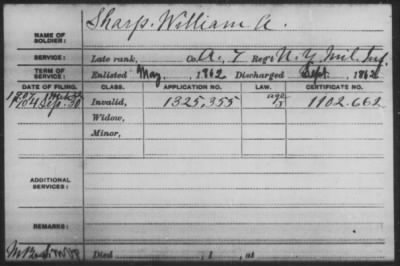 NAME OF SOLDIER: Sharp, William A.
SERVICE: Late rank, Co. A, 7 Reg't N. Y. Mil. Inf.
TERM OF SERVICE: Enlisted May , 1862 Discharged Sept. , 1862
DATE OF FILING. CLASS. APPLICATION NO. LAW. CERTIFICATE NO.
1904 Sep. 30 Invalid, 1325,355 1102.662
Widow,
Minor,
ADDITIONAL SERVICES:
REMARKS:
Died , 1 , at